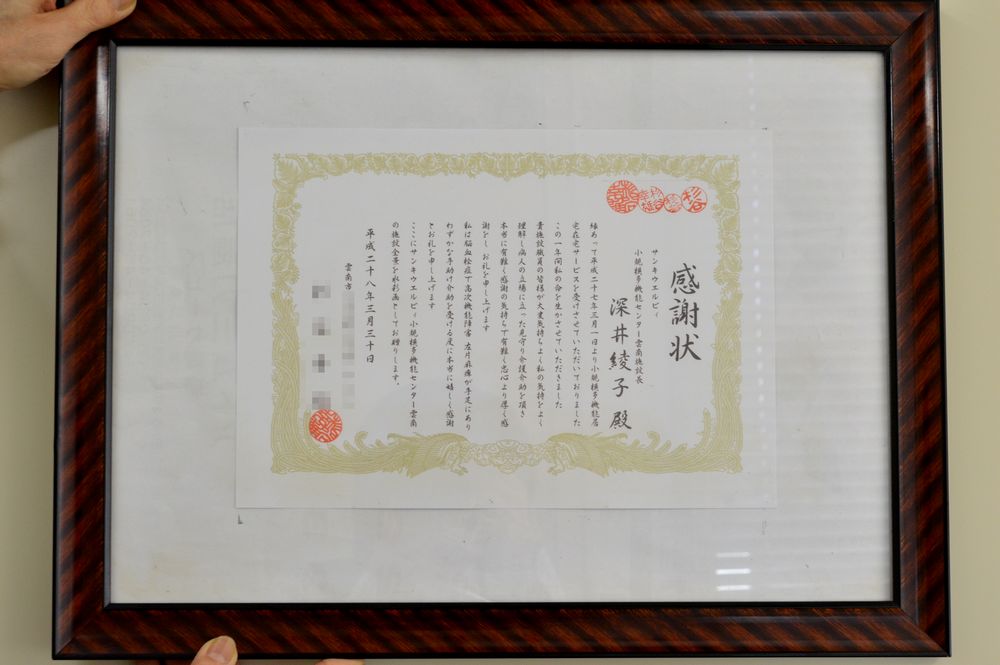 感謝状
サンキウエルビィ
小規模多機能センター雲南施設長
深井綾子 殿
縁あって平成二十七年三月一日より小規模多機能居
宅在宅サービスを受けさせていただいておりました
この一年間私の命を生かさせていただきました
貴施設職員の皆様が大変気持ちよく私の気持をよく
理解し病人の立場に立った見守り介護介助を頂き
本当に有難く感謝の気持ちで有難く忠心より厚く感
謝をし お礼を申し上げます
私は脳血栓症で高次機能障害 左片麻痺が手足にあり
わずかな手助け介助を受ける度に本当に嬉しく感謝
とお礼を申し上げます
ここにサンキウエルビィ小規模多機能センター雲南
の施設全景を水彩画としてお贈りします。
平成二十八年三月三十日
雲南市